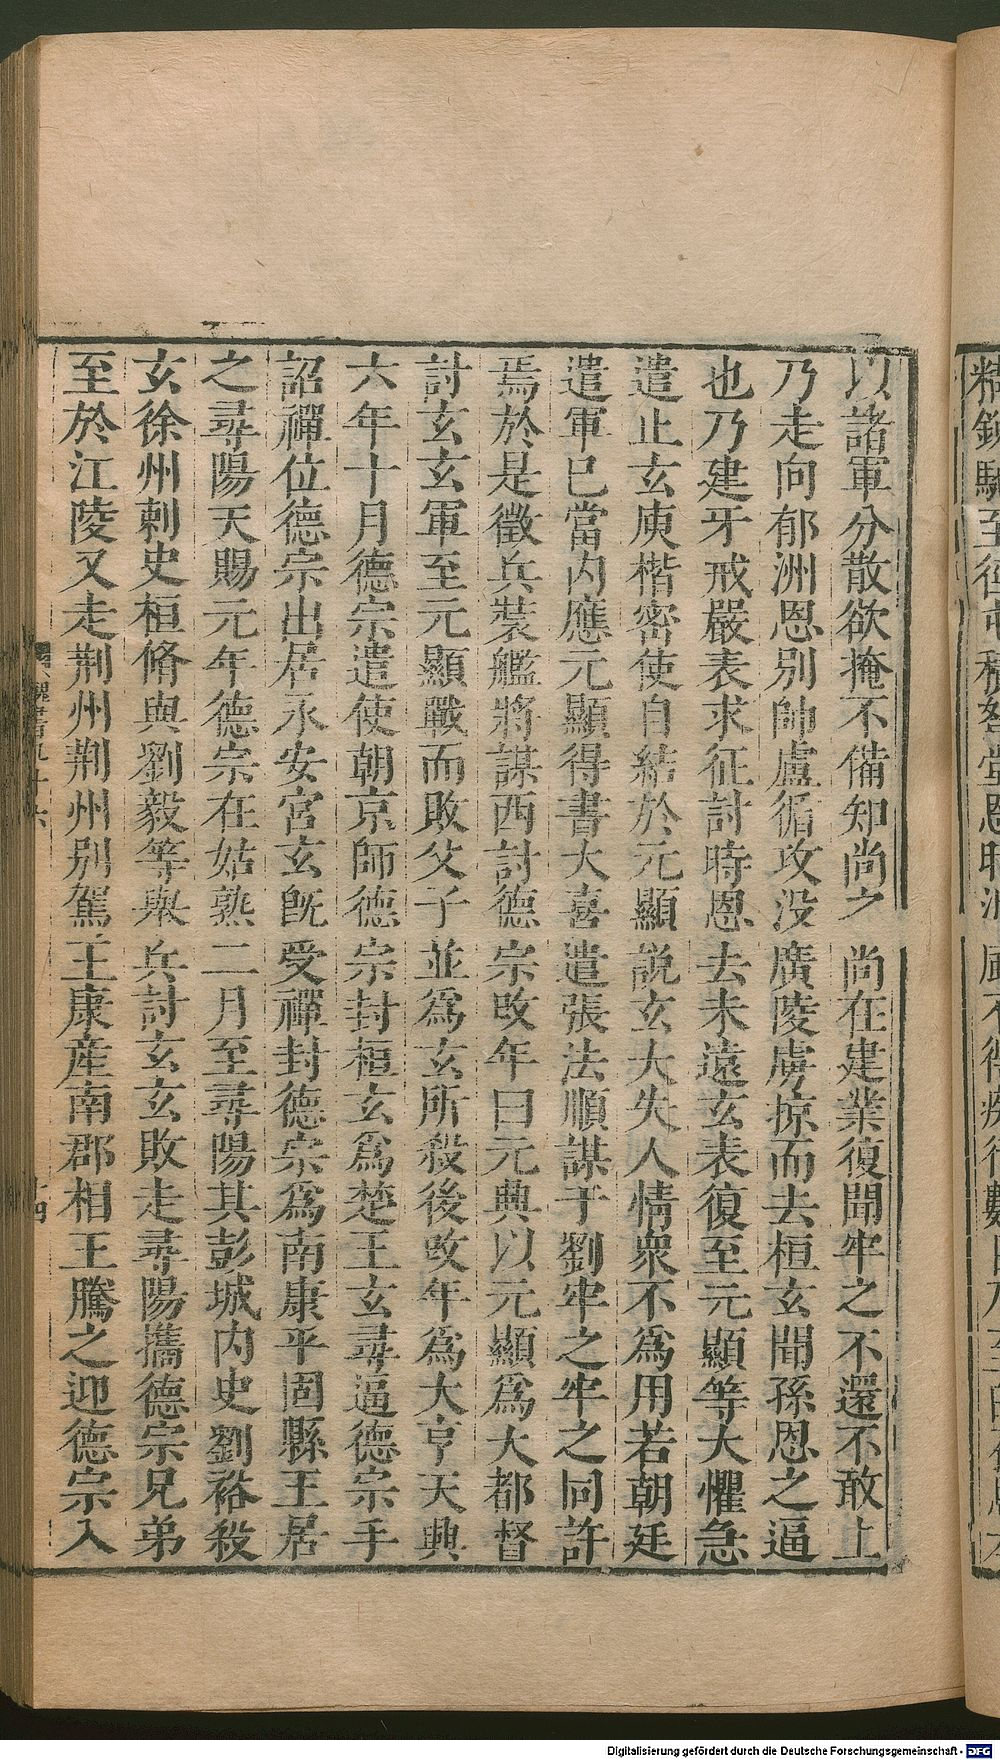 以諸軍分散欲掩不備知尚之尚在建業復聞牢之不還不敢上
乃走向郁洲恩別帥盧循攻没廣陵虜掠而去桓玄聞孫恩之逼
也乃建牙戒嚴表求征討時恩去未遠玄表復至元顯等大懼急
遣止玄庾楷密使自結於元顯說玄大失人情衆不爲用若朝廷
遣軍巳當内應元顯得書大喜遣張法順謀于劉牢之牢之同許
焉於是徵兵裝艦將謀西討德宗改年曰元典以元顯爲大都督
討玄玄軍至元顯戰而敗父子並爲玄所殺後改年爲大亨天興
六年十月德宗遣使朝京師德宗封桓玄爲楚王玄尋逼德宗手
詔禪位德宗出居永安宮玄旣受禪封德宗爲南康平固縣王居
之尋陽天賜元年德宗在姑熟二月至尋陽其彭城内史劉裕殺
玄徐州刺史桓脩與劉毅等舉兵討玄玄敗走尋陽攜德宗兄弟
至於江陵又走荆州荆州別駕王康産南郡相王騰之迎德宗入
魏書九十六
十四
Digitalisierung gefördert durch die Deutsche Forschungsgemeinschaft - DFG